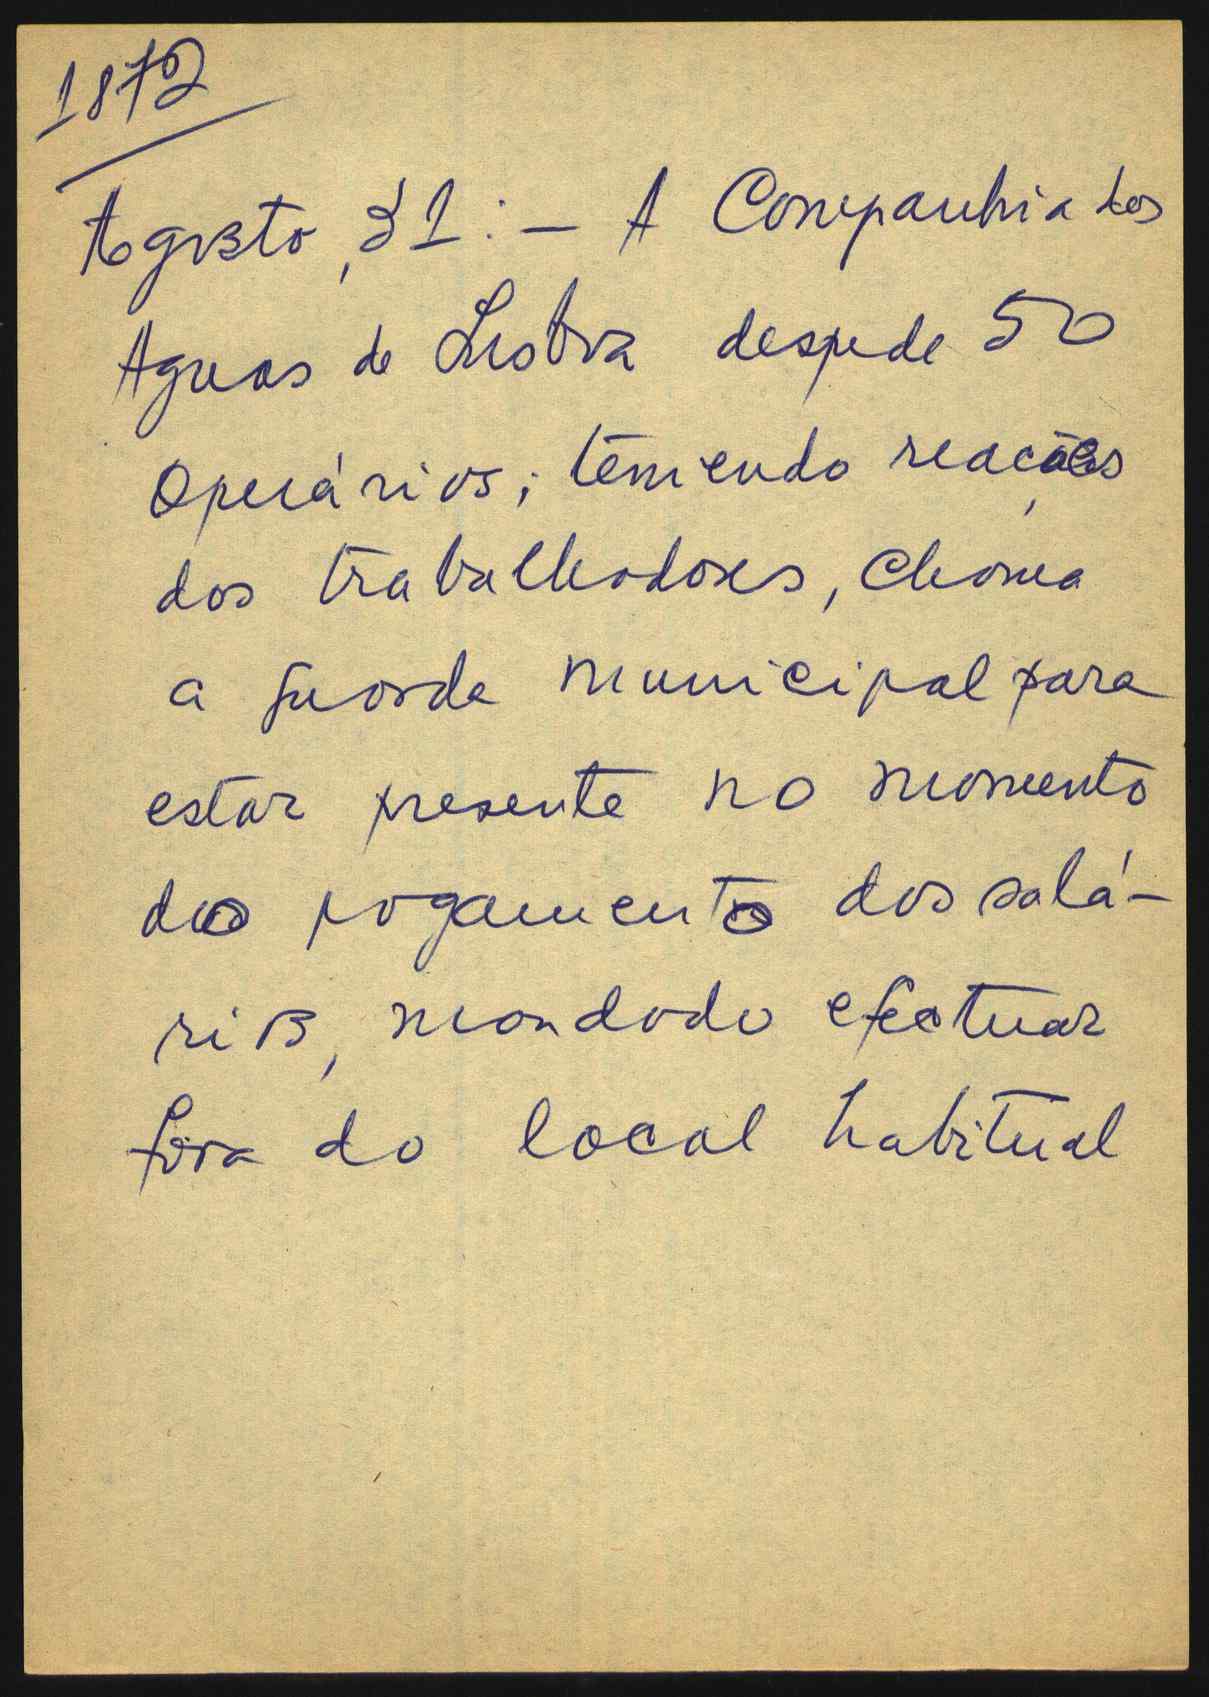 1872
Agosto, 31: — A Companhia dos
Aguas de Lisboa despede 50
operários; temendo reacções
dos trabalhadores, chama
a guarda municipal para
estar presente no momento
do pagamento dos salá-
rios, mandado efectuar
fora do local habitual